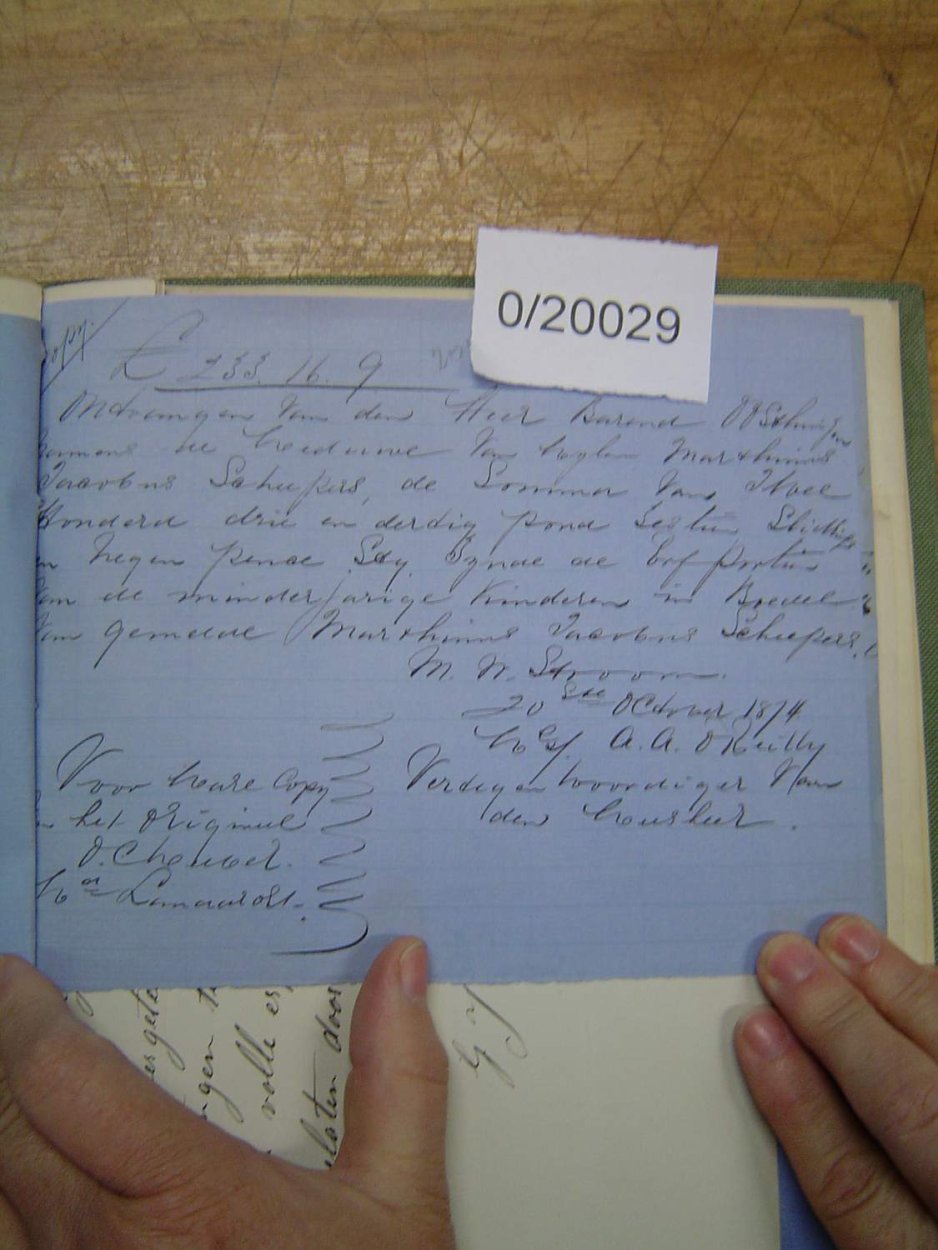 0/20029
Copy.
£ 233. 16. 9
Ontvangen van den Heer Barend
namens de Weduwe Van wylen Marthinus
Jacobus Schepers, de Somma van Twee
Honderd drie en dertig pond Sestien
en negen pence Stg. Zynde de Erfportie
van de minderjarige Kinderen in Boedel
van gemelde Marthinus Jacobus Schepers.
M. W. Stroom.
20ste October 1874
Wgs/. A. A. O'Reilly
Vertegenwoordiger van
den Weesheer.
Voor Ware Copy
het Origineel
O. C. Weeber.
Wn Landdrost.
volle
door